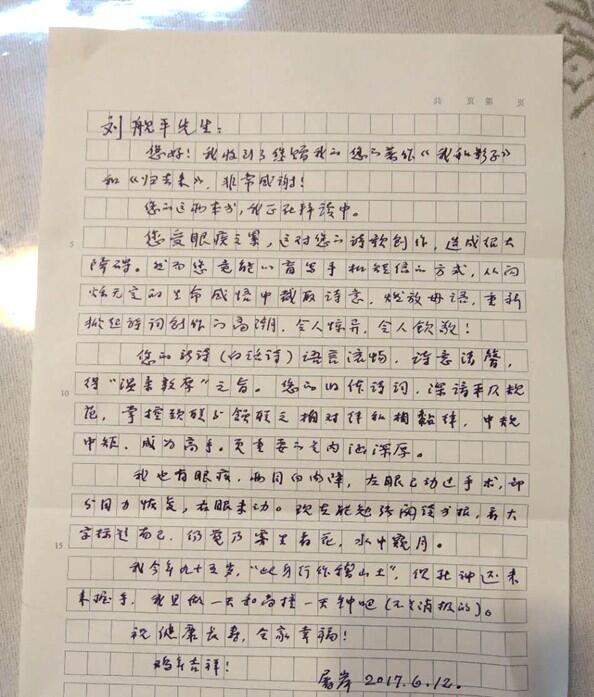 共 页 第 页
刘舰平先生：
您好！我收到了您赠我的您的著作《我和影子》
和《归去来》，非常感谢！
您的这两本书，我正在拜读中。
5
您受眼疾之累，这对您的诗歌创作，造成很大
障碍。然而您竟能以盲写手机短信的方式，从闪
烁无定的生命感悟中截取诗意，燃放母语，重新
掀起诗词创作的高潮，令人惊异，令人钦敬！
您的新诗（白话诗）语言流畅，诗意浓馨，
10
得“温柔敦厚”之旨。您的旧体诗词，深谙平仄规
范，掌控颈联与颔联之相对律和相黏律，中规
中矩，成为高手。更重要的是内涵深厚。
我也有眼疾，两目白内障，左眼已动过手术，部
分目力恢复，右眼未动。现在能勉强阅读书报，看大
字标题而已，仍觉乃雾里看花，水中窥月。
15
我今年九十五岁，“此身行作稽山土”，但死神还未
来握手，我且做一天和尚撞一天钟吧（不是消极的）。
祝健康长寿，全家幸福！
鸡年吉祥！
屠岸 2017.6.12.